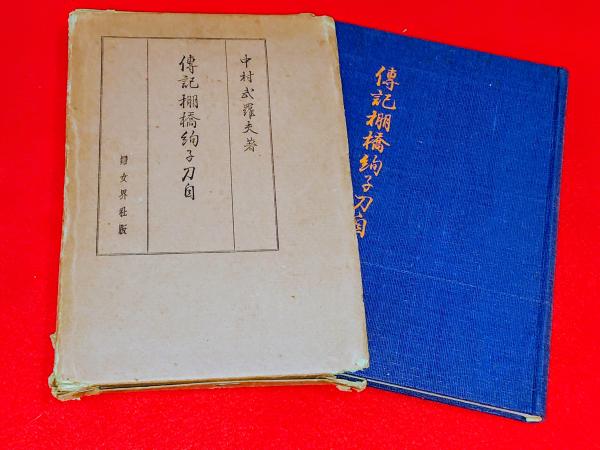 中村武羅夫著
傳記棚橋絢子刀自
婦女界社版
傳記棚橋絢子刀自